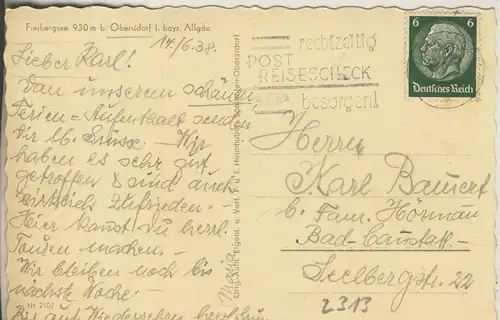 Freibergsee 930 m b. Oberstdorf i. bayr. Allgäu
14./6.38.
Lieber Karl!
Von unserem schönen
Ferien-Aufenthalt senden
Dir lb. Grüsse – Wir
haben es sehr gut
getroffen & sind auch
wirklich zufrieden.
Hier kannst du herrl.
Touren machen. –
Wir bleiben noch bis
nächste Woche –
Bis auf Wiedersehen herzl.
Nr. 2107
rechtzeitig
POST
REISESCHECK
besorgen!
6 6
Deutsches Reich
Herrn
Karl Bauert
b. Fam. Hörman
Bad-Cannstatt.-
Seelbergstr. 22
2313